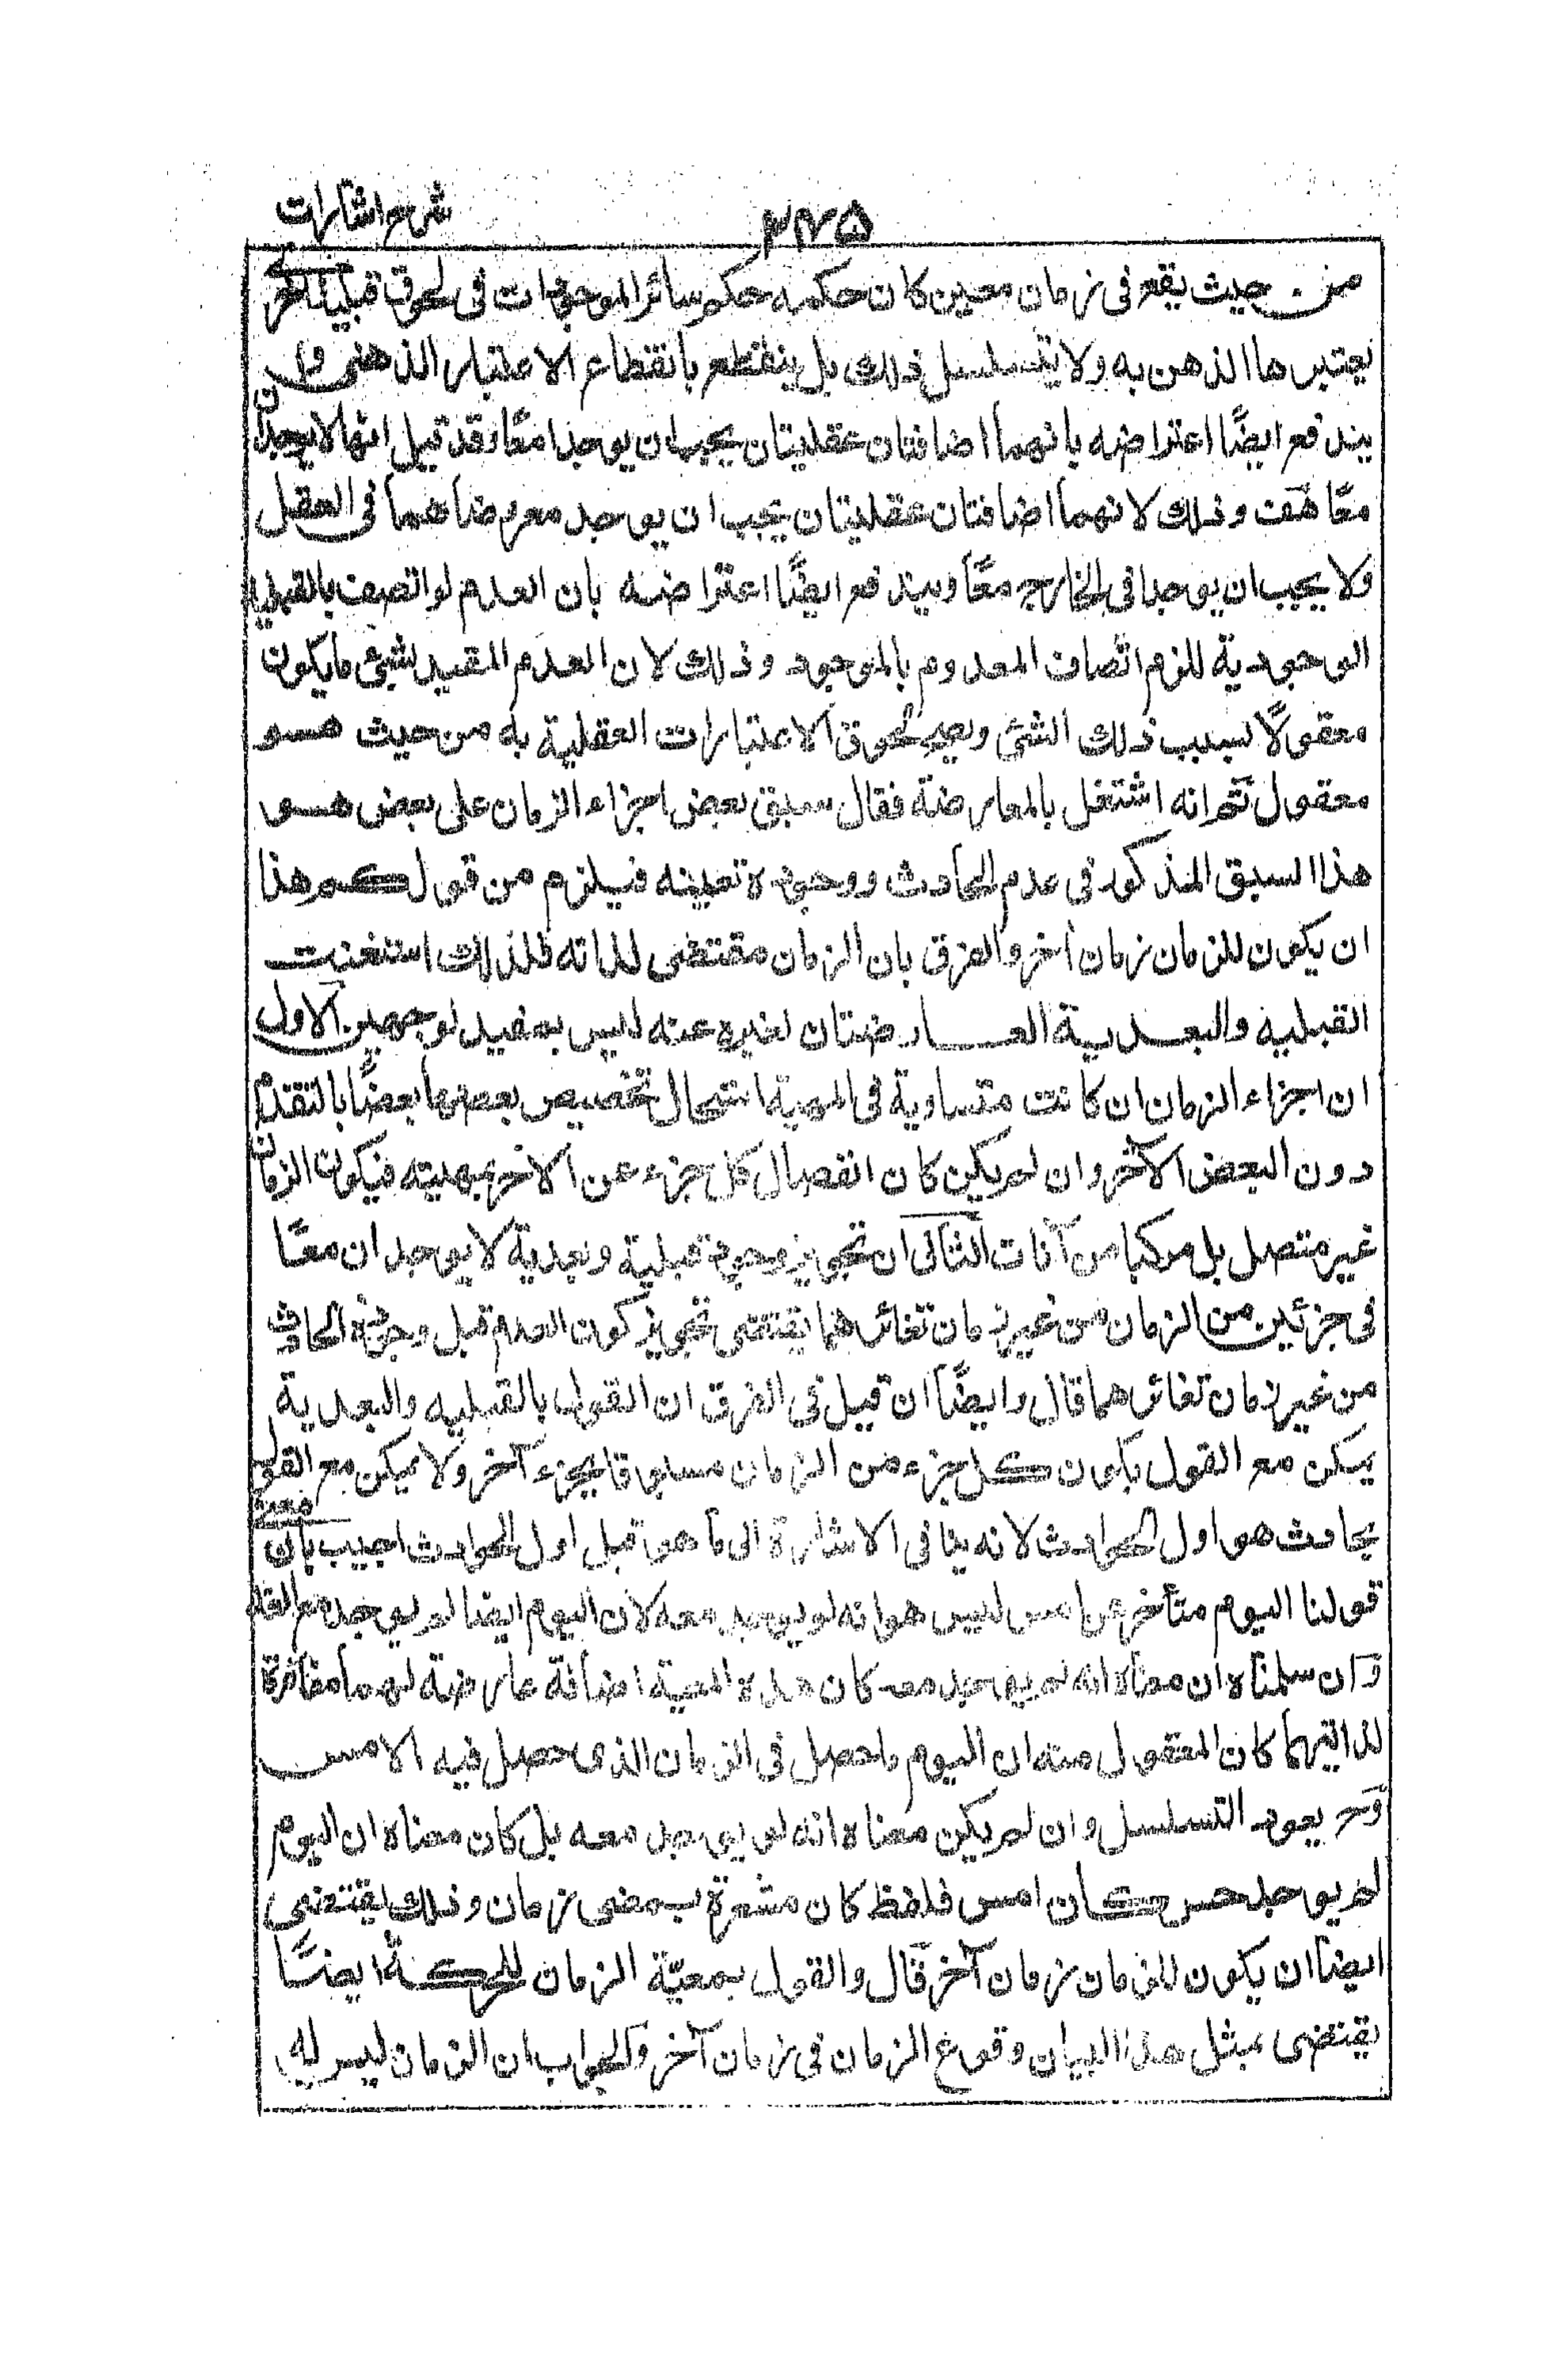 شرح اشارات
٣٧٥
من حيث يقع فى زمان معين كان حكمه حكم سائر الموجودات فى لحوق قبلية اخرى
يعتبرها الذهن به ولا يتسلسل ذلك بل ينقطع بانقطاع الاعتبار الذهنى و
يندفع ايضًا اعتراضه بانهما اضافتان عقليتان يجب ان يوجدا معًا وقد قيل انهما لا يوجدان
معًا هف وذلك لانهما اضافتان عقليتان يجب ان يوجد معروضاهما فى العقل
ولا يجب ان يوجدا فى الخارج معًا ويندفع ايضًا اعتراضه بان العدم لو اتصف بالقبلية
الوجودية للزم اتصاف المعدوم بالموجود وذلك لان العدم المقيد بشئ ما يكون
معقولًا بسبب ذلك الشئ ويصح لحوق الاعتبارات العقلية به من حيث هو
معقول ثم انه اشتغل بالمعارضة فقال سبق بعض اجزاء الزمان على بعض هو
هذا السبق المذكور فى عدم الحادث ووجوده تعيينه فيلزم من قولكم هذا
ان يكون للزمان زمان آخر والفرق بان الزمان مقتضى لذاته فلذلك استغنت
القبلية والبعدية العارضتان لغيره عنه ليس بمفيد لوجهين الاول
ان اجزاء الزمان ان كانت متساوية فى المهية استحال تخصيص بعضها بعضًا بالتقدم
دون البعض الآخر وان لم يكن كان انفصال كل جزء عن الآخر بمهيته فيكون الزمان
غير متصل بل مركبا من آنات الثانى ان تجويز وجود قبلية وبعدية لا يوجدان معًا
فى جزئين من الزمان من غير زمان تغائرهما يقتضى تجويز كون العدم قبل وجود الحادث
من غير زمان تغائرهما قال وايضًا ان قيل فى الفرق ان القول بالقبلية والبعدية
يمكن مع القول بكون كل جزء من الزمان مسبوقا بجزء آخر ولا يمكن مع القول
بحادث هو اول الحوادث لانه ينافى الاشارة الى ما هو قبل اول الحوادث اجيب بان معنى
قولنا اليوم متأخر عن امس ليس هو انه لم يوجد معه لان اليوم ايضا لم يوجد مع الغد
وان سلمناه ان معناه انه لم يوجد معه كان هذه المعية اضافة عارضة لهما مغائرة
لذاتيهما كان المعقول منه ان اليوم ما حصل فى الزمان الذى حصل فيه الامس
وح يعود التسلسل وان لم يكن معناه انه لم يوجد معه بل كان معناه ان اليوم
لم يوجد حين كان امس فلفظ كان مشعرة بمضى زمان وذلك يقتضى
ايضا ان يكون للزمان زمان آخر قال والقول بمعيّة الزمان للحركة ايضًا
يقتضى بمثل هذا البيان وقوع الزمان فى زمان آخر والجواب ان الزمان ليس له